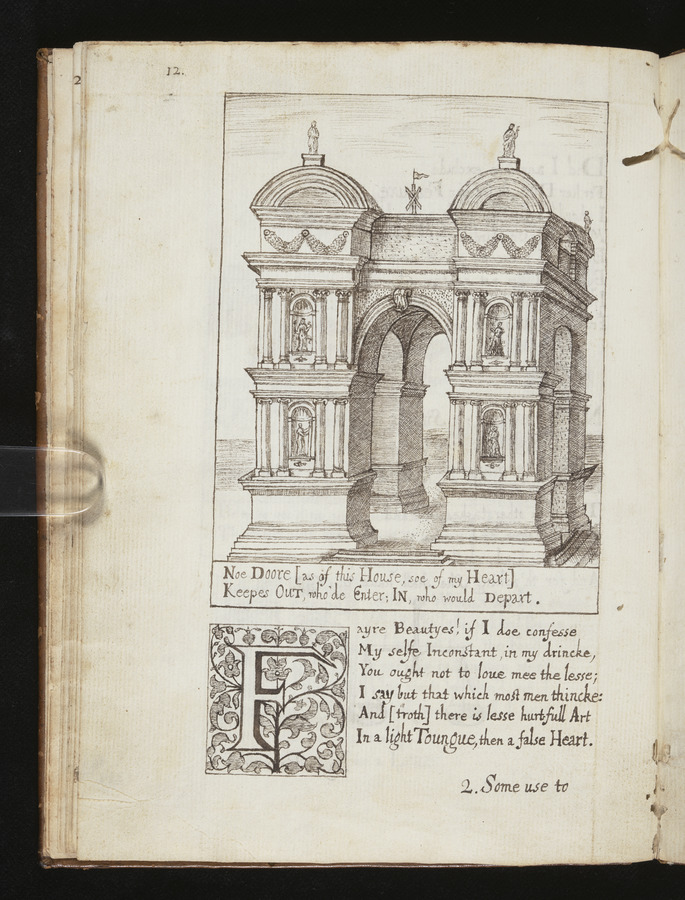 12.
2
Noe Doore [as of this House, soe of my Heart]
Keepes OUT, who'de Enter; IN, who would Depart.
Fayre Beautyes! if I doe confesse
My selfe Inconstant, in my drincke,
You ought not to loue mee the lesse;
I say but that which most men thincke:
And [troth] there is lesse hurtfull Art
In a light Toungue, then a false Heart.
2. Some use to